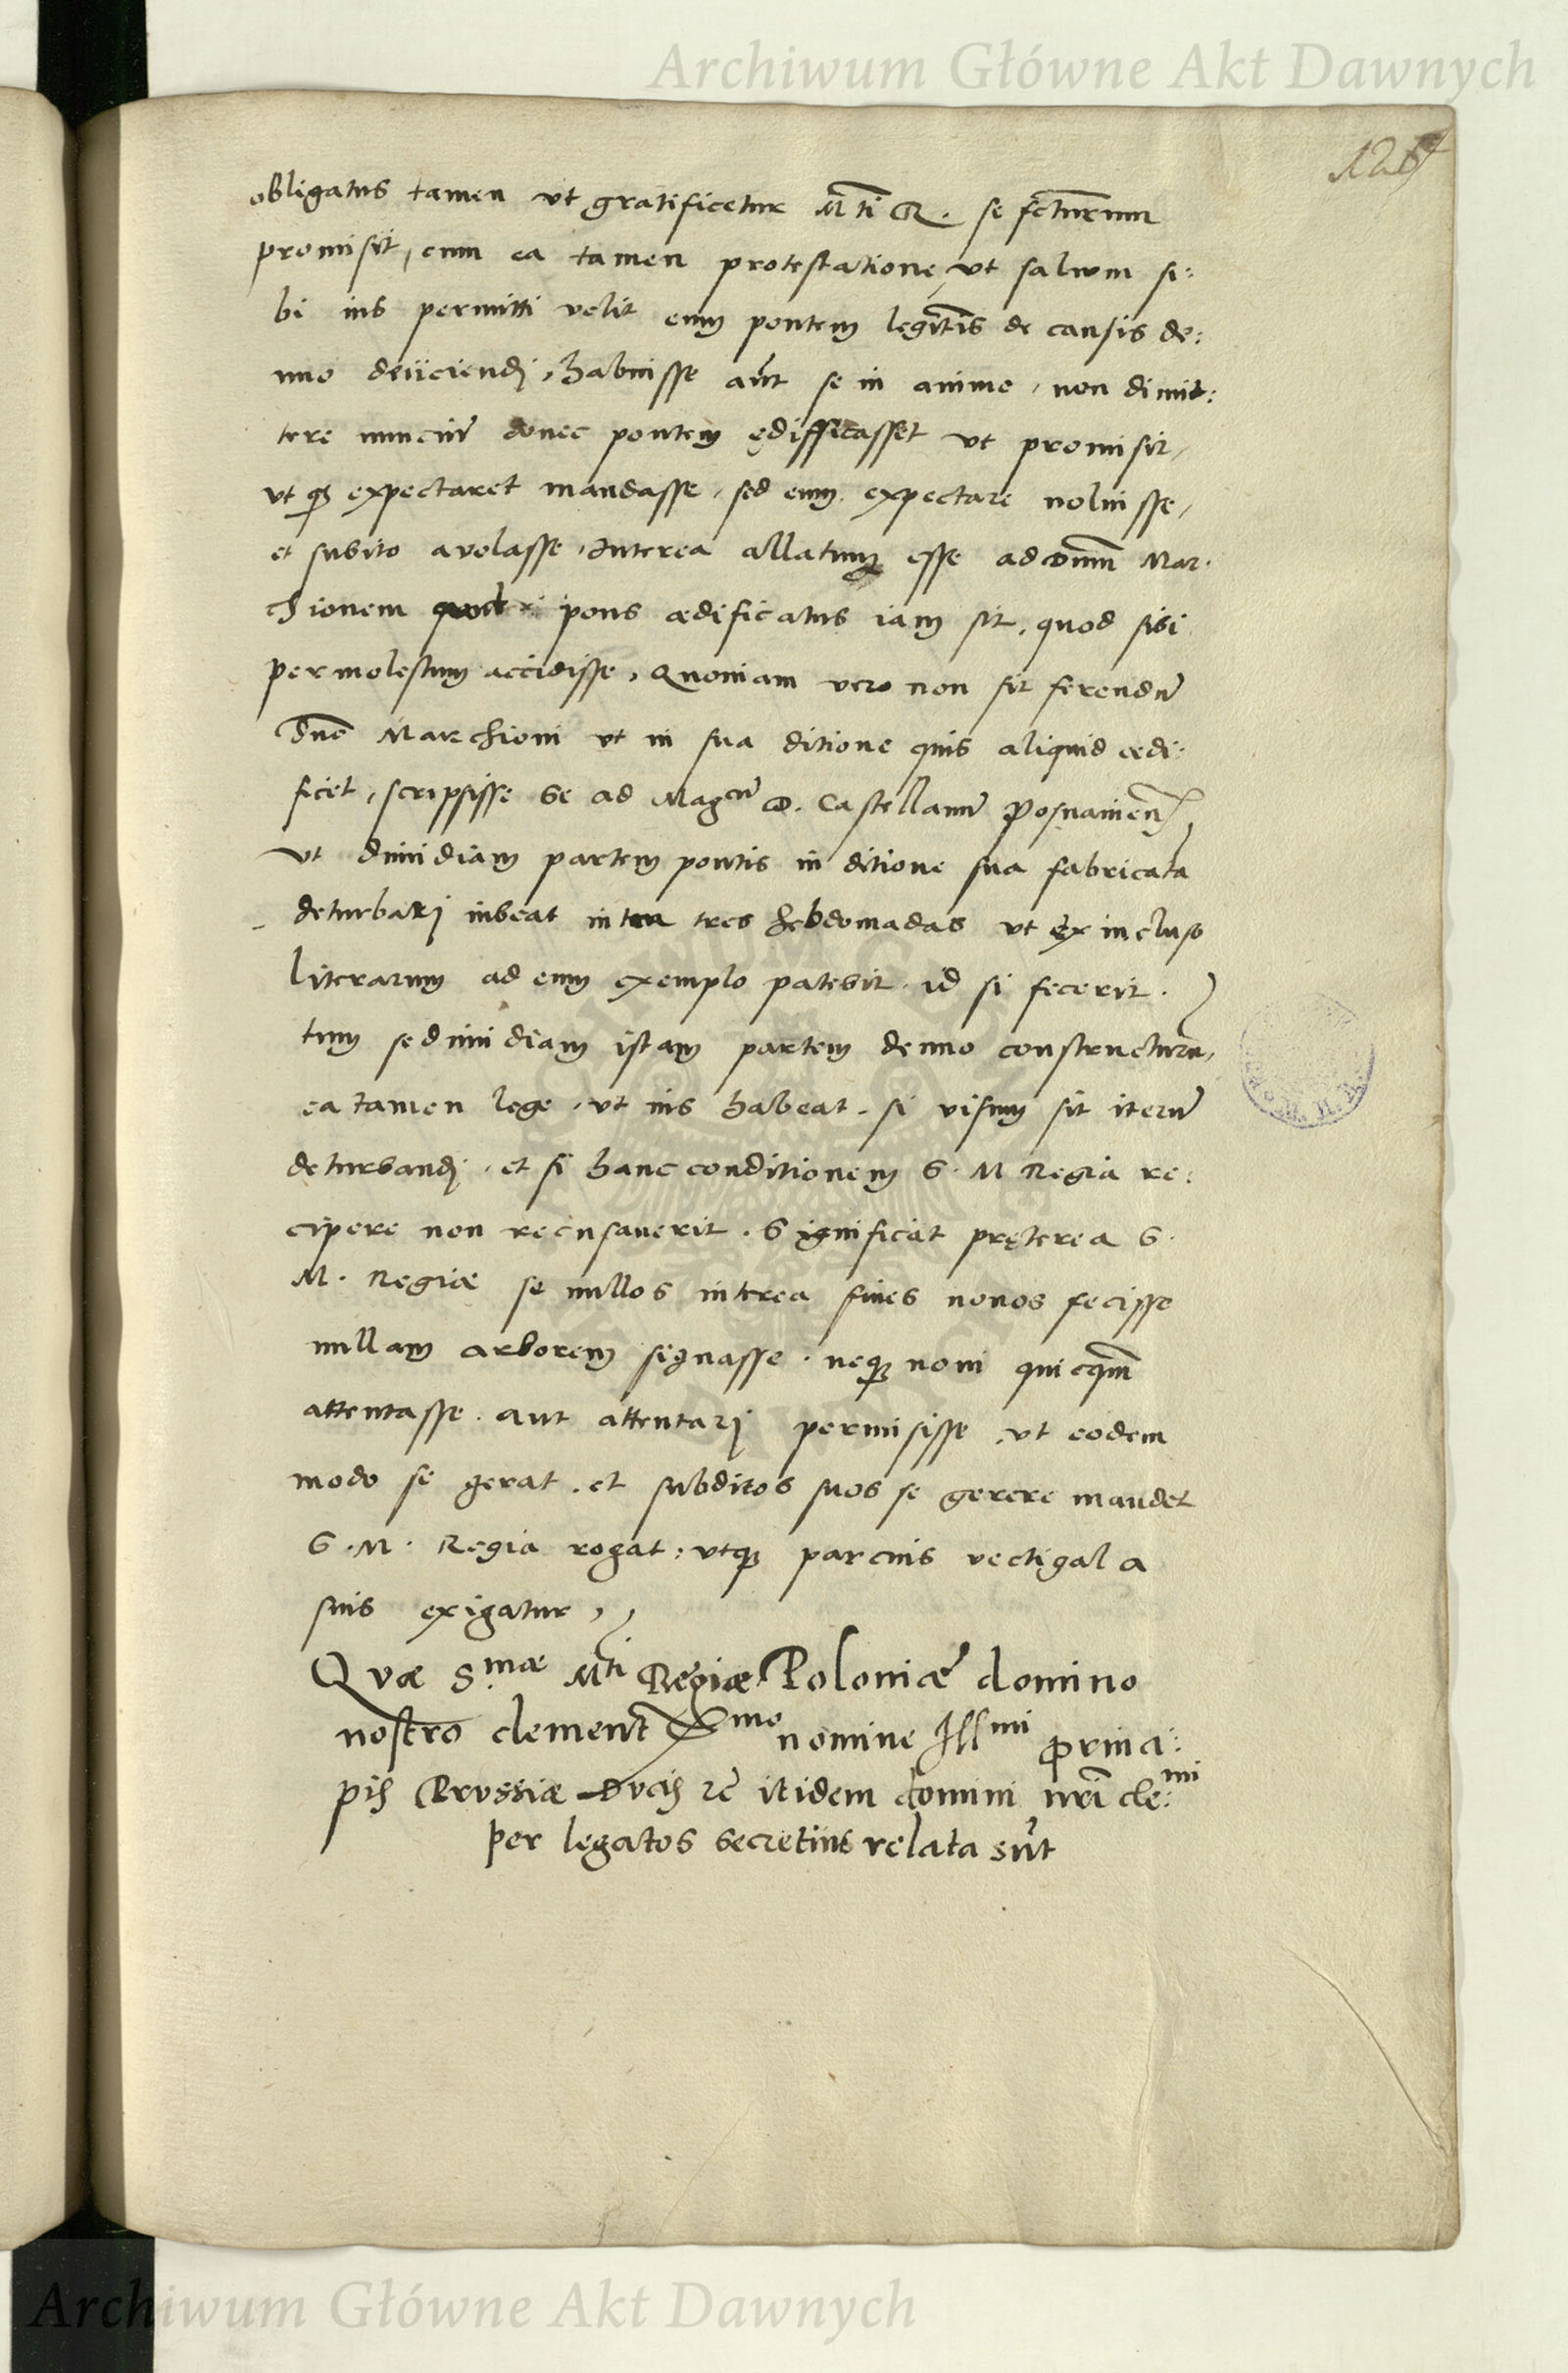 Archiwum Główne Akt Dawnych
obligatus tamen vt gratificetur M̃ti R. se fc̃turum
promisit, cum ea tamen protestatione, vt saluum si:
bi ius permitti velit eum pontem legit̃is de causis de:
nuo deiiciendi, habuisse aũt se in animo, non dimit:
tere nunciũ donec pontem ędifficasset vt promisit,
vt expectaret mandasse, sed eum expectare noluisse,
et subito auolasse, Interea allatum esse ad dnum̃ Mar:
chionem pons ædificatus iam sit, quod sibi
permolestum accidisse, Quoniam vero non sit ferendũ
Dno Marchioni vt in sua ditione quis aliquid ædi:
ficet, scripsisse se ad Magcũ D. Castellanũ Posnanien̄
vt dimidiam partem pontis in ditione sua fabricatã
deturbari iubeat intra tres hebdomadas vt ex incluso
literarum ad eum exemplo patebit, id si fecerit.
tum se dimidiam istam partem denuo constructurũ,
ea tamen lege, vt ius habeat, si visum sit iterũ
deturbandi, et si hanc conditionem S. M Regia re:
cipere non recusauerit. Significat pręterea S.
M. Regiæ se nullos interea fines nouos fecisse
nullam arborem signasse, neq3 noui quicq̃m
attentasse, aut attentari permisisse, vt eodem
modo se gerat, et subditos suos se gerere mandet
S. M. Regia rogat: vtq3 parcius vectigal a
suis exigatur,,
Qvæ S.mæ Mti Regiæ Poloniæ domino
nostro clement mo nomine Illmi princi:
pis Prvssiæ Dvcis ꝛc̃ itidem domini nr̃i cle:mi
per legatos secretius relata sũt
Archiwum Główne Akt Dawnych